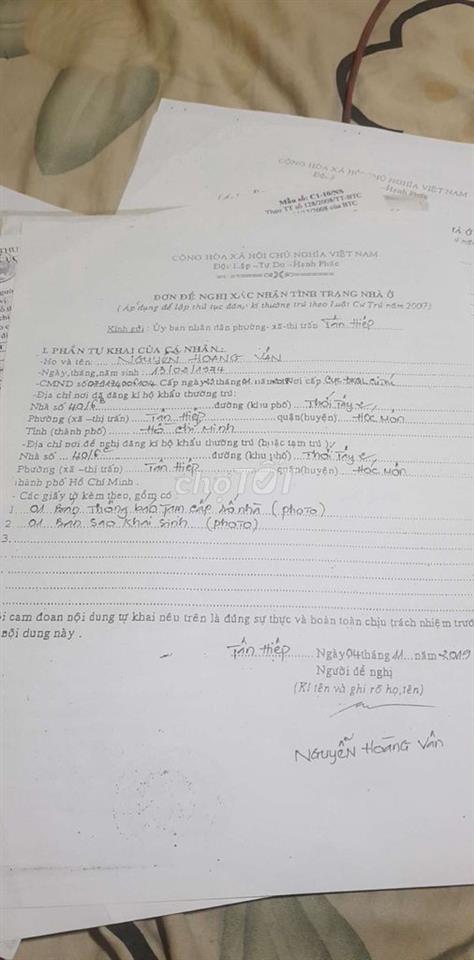 CỘNG HÒA XÃ HỘI CHỦ NGHĨA VIỆT NAM
-Hạnh Phúc
Mẫu số: C1-10/NS
Theo TT số 128/2008/TT-BTC
của BTC
CỘNG HÒA XÃ HỘI CHỦ NGHĨA VIỆT NAM
Độc Lập -Tự Do -Hạnh Phúc
ĐƠN ĐỀ NGHỊ XÁC NHẬN TÌNH TRẠNG NHÀ Ở
(Áp dụng để lập thủ tục đăng kí thường trú theo Luật Cư Trú năm 2007)
Kính gởi : Ủy ban nhân dân phường- xã-thị trấn Tân Hiệp
I. PHẦN TỰ KHAI CỦA CÁ NHÂN:
-Họ và tên: NGUYỄN HOÀNG VÂN
-Ngày,tháng,năm sinh : 19/02/1974
-CMND số Cấp ngày tháng năm Nơi cấp
-Địa chỉ nơi đã đăng kí hộ khẩu thường trú:
Nhà số 40/6 đường (khu phố) Thới Tây 2
Phường (xã –thị trấn) Tân Hiệp quận(huyện) Hóc Môn
Tỉnh (thành phố) Hồ Chí Minh
-Địa chỉ nơi đề nghị đăng kí hộ khẩu thường trú (hoặc tạm trú )
Nhà số 40/6 đường (khu phố) Thới Tây 2
Phường (xã –thị trấn) Tân Hiệp quận(huyện) Hóc Môn
thành phố Hồ Chí Minh .
- Các giấy tờ kèm theo, gồm có
1 01 bản Thông báo tạm cấp số nhà (photo)
2 01 bản sao khai sinh (photo)
3
chợTỐT
cam đoan nội dung tự khai nêu trên là đúng sự thực và hoàn toàn chịu trách nhiệm trước
nội dung này .
Tân Hiệp Ngày 04 tháng 11 năm 2019
Người đề nghị
(Kí tên và ghi rõ họ,tên)
NGUYỄN HOÀNG VÂN